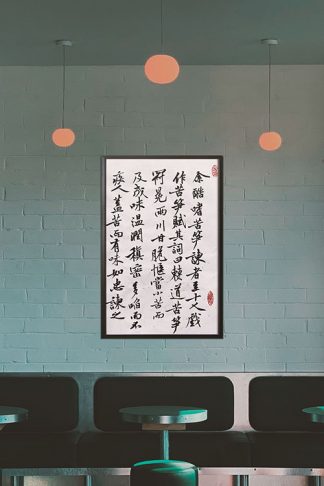 余酷嗜苦笋諫者至十人戲
作苦笋賦其詞曰僰道苦笋
冠冕兩川甘脆愜當小苦而
及成味溫潤縝密多啗而不
疾人蓋苦而有味如忠諫之